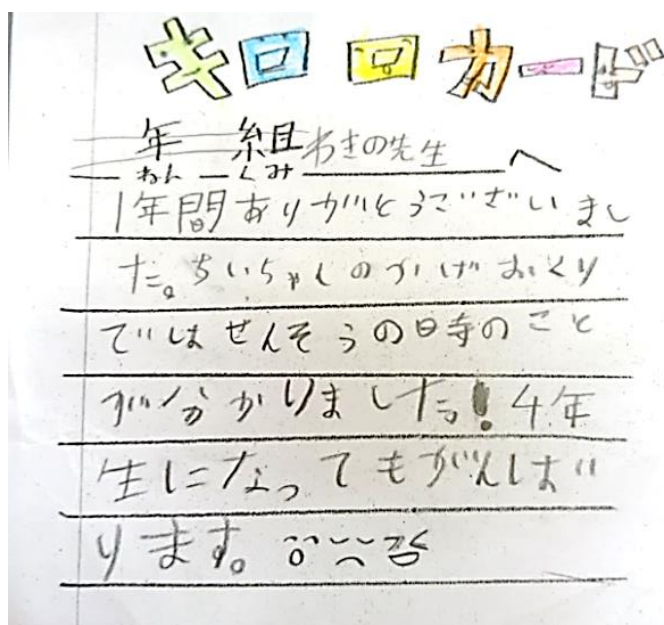 キロロカード
年組わきの先生へ
ねんくみ
1年間ありがとうございまし
た。ちいちゃんのかげおくり
ではせんそうの時のこと
が分かりました!4年
生になってもがんばり
ります。